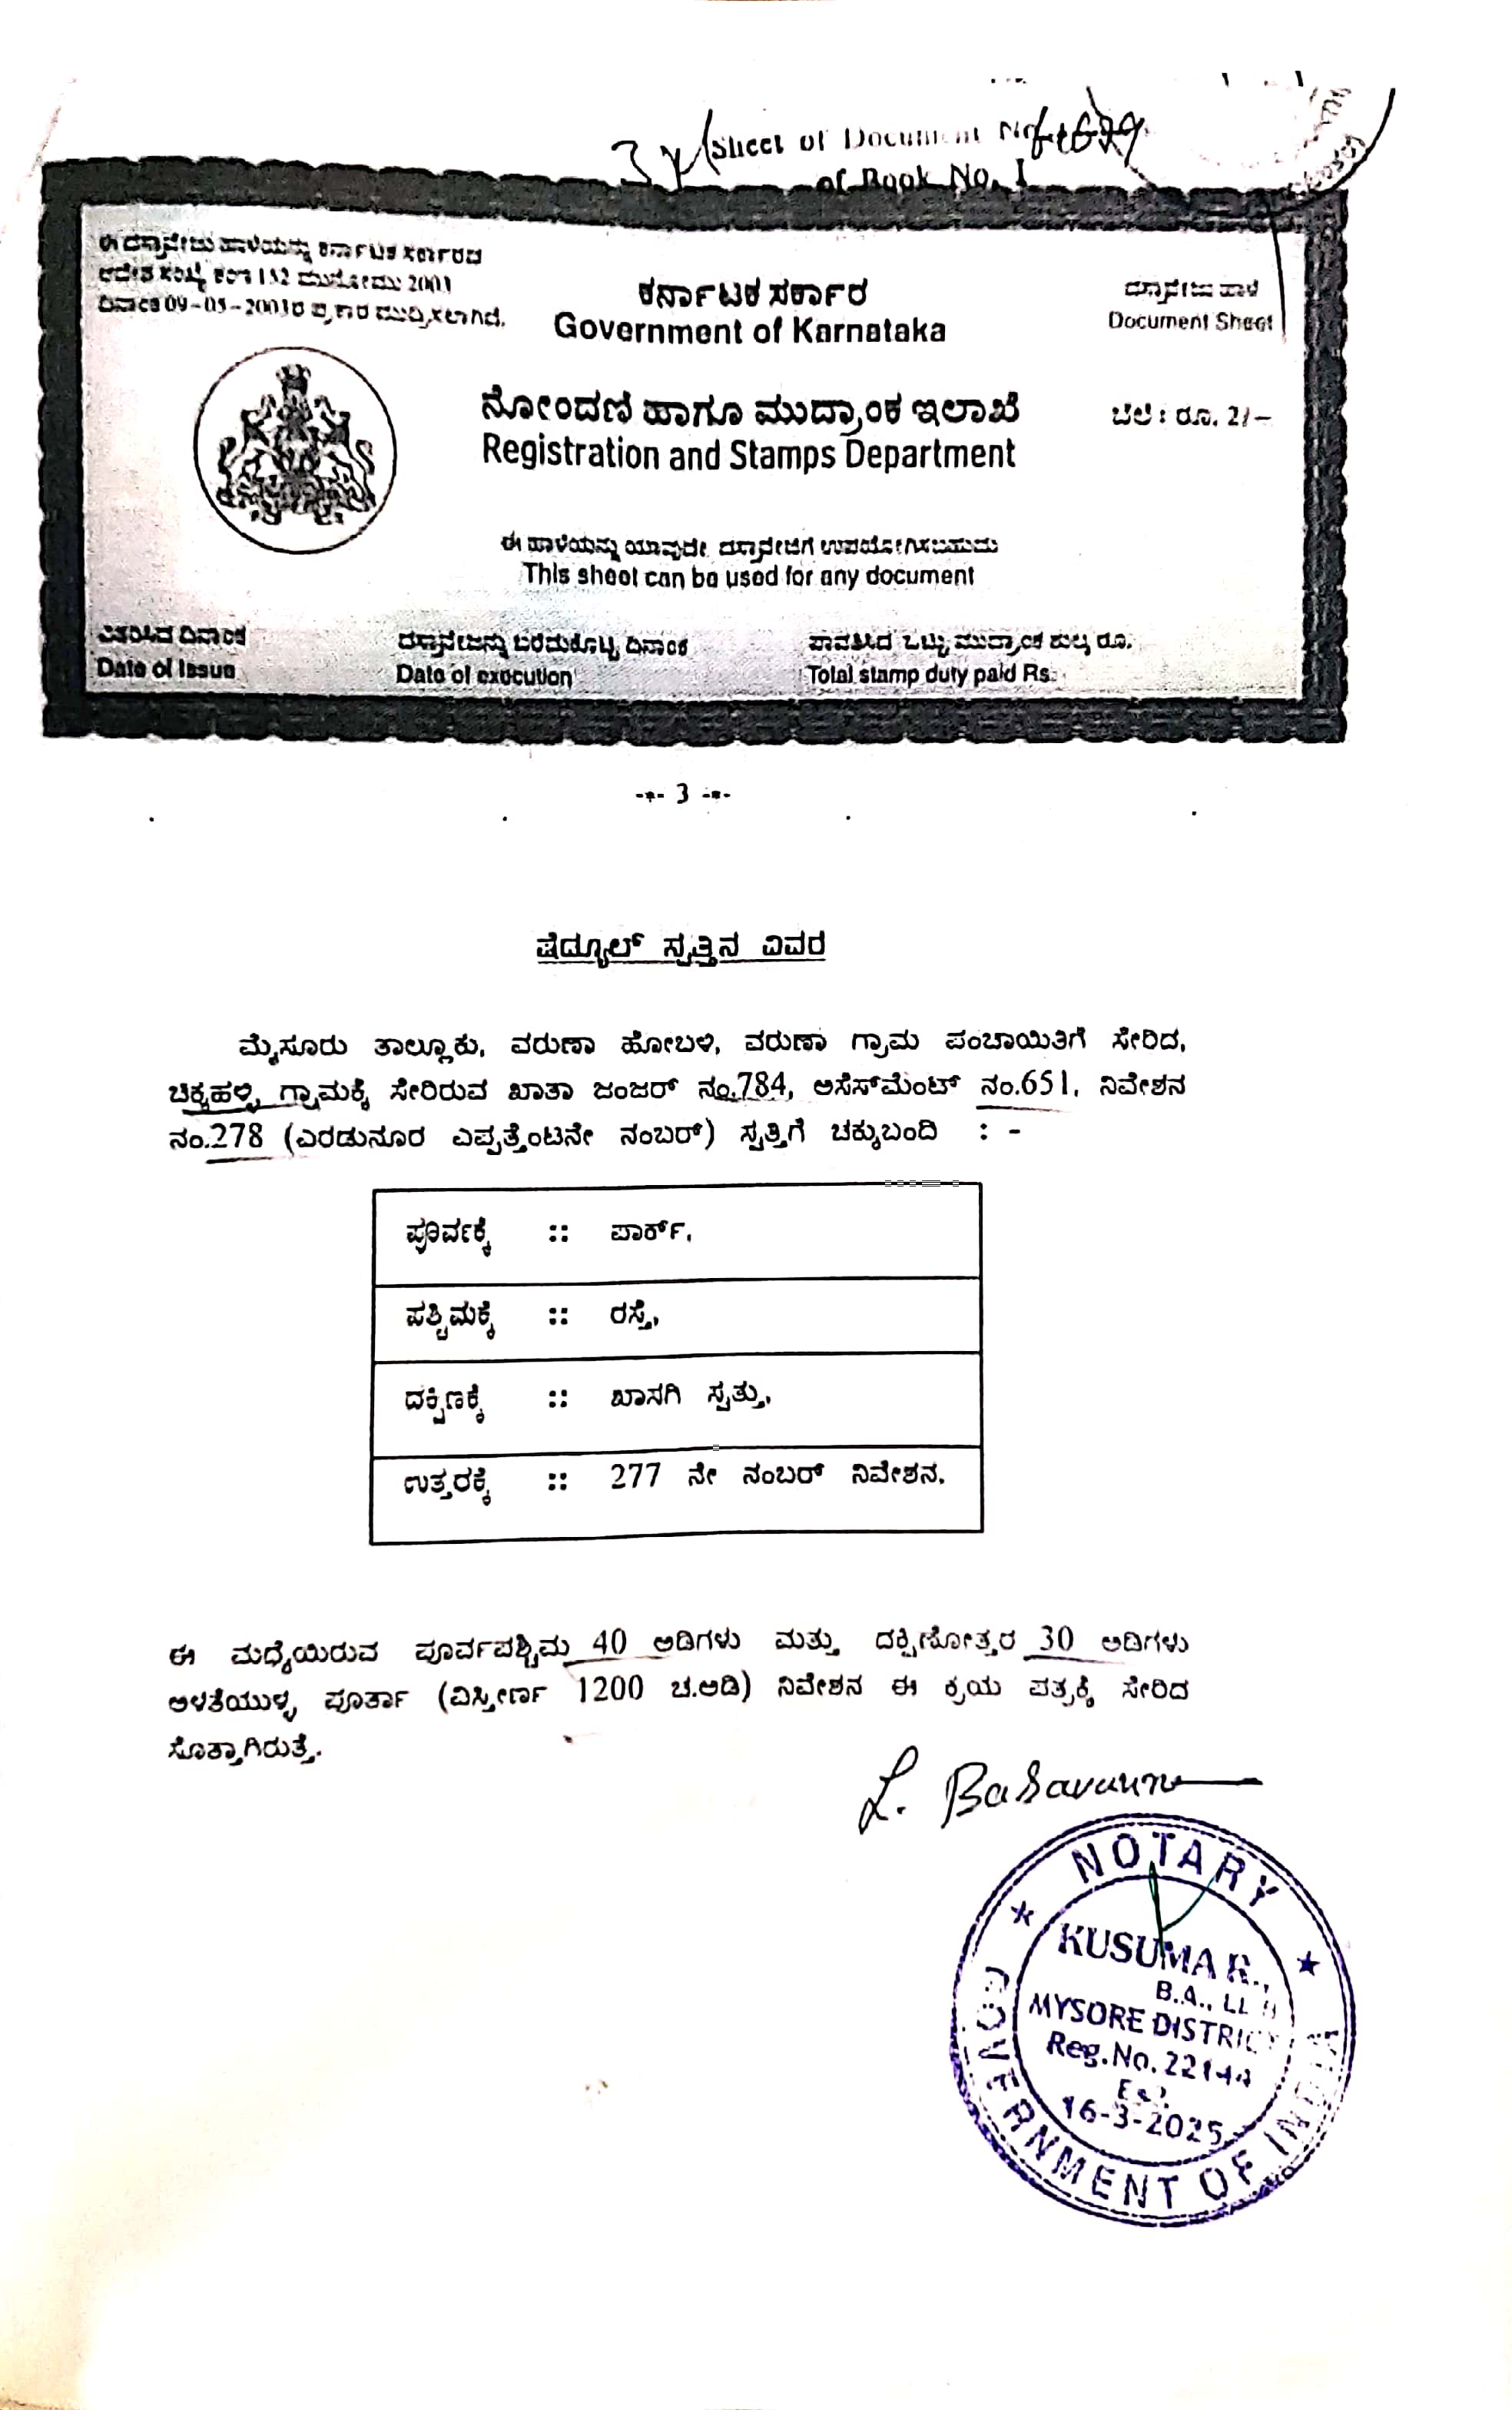 3 Sheet of Document No.
of Book No. I
ಈ ದಸ್ತಾವೇಜು ಹಾಳೆಯನ್ನು ಕರ್ನಾಟಕ ಸರ್ಕಾರದ
ಆದೇಶ ಸಂಖ್ಯೆ ಕಂಇ 152 ಮುನೋಮು 2003
ದಿನಾಂಕ 09-05-2003ರ ಪ್ರಕಾರ ಮುದ್ರಿಸಲಾಗಿದೆ.
ಕರ್ನಾಟಕ ಸರ್ಕಾರ
Government of Karnataka
ದಸ್ತಾವೇಜು ಹಾಳೆ
Document Sheet
ನೋಂದಣಿ ಹಾಗೂ ಮುದ್ರಾಂಕ ಇಲಾಖೆ
Registration and Stamps Department
ಬೆಲೆ : ರೂ. 2/-
ಈ ಹಾಳೆಯನ್ನು ಯಾವುದೇ ದಸ್ತಾವೇಜಿಗೆ ಉಪಯೋಗಿಸಬಹುದು
This sheet can be used for any document
ವಿತರಿಸಿದ ದಿನಾಂಕ
Date of Issue
ದಸ್ತಾವೇಜನ್ನು ಬರೆದುಕೊಟ್ಟ ದಿನಾಂಕ
Date of execution
ಪಾವತಿಸಿದ ಒಟ್ಟು ಮುದ್ರಾಂಕ ಶುಲ್ಕ ರೂ.
Total stamp duty paid Rs.
-*- 3 -*-
ಷೆಡ್ಯೂಲ್ ಸ್ವತ್ತಿನ ವಿವರ
ಮೈಸೂರು ತಾಲ್ಲೂಕು, ವರುಣಾ ಹೋಬಳಿ, ವರುಣಾ ಗ್ರಾಮ ಪಂಚಾಯಿತಿಗೆ ಸೇರಿದ,
ಚಿಕ್ಕಹಳ್ಳಿ ಗ್ರಾಮಕ್ಕೆ ಸೇರಿರುವ ಖಾತಾ ಜಂಜರ್ ನಂ.784, ಅಸೆಸ್‌ಮೆಂಟ್ ನಂ.651, ನಿವೇಶನ
ನಂ.278 (ಎರಡುನೂರ ಎಪ್ಪತ್ತೆಂಟನೇ ನಂಬರ್) ಸ್ವತ್ತಿಗೆ ಚಕ್ಕುಬಂದಿ : -
ಪೂರ್ವಕ್ಕೆ :: ಪಾರ್ಕ್,
ಪಶ್ಚಿಮಕ್ಕೆ :: ರಸ್ತೆ,
ದಕ್ಷಿಣಕ್ಕೆ :: ಖಾಸಗಿ ಸ್ವತ್ತು,
ಉತ್ತರಕ್ಕೆ :: 277 ನೇ ನಂಬರ್ ನಿವೇಶನ.
ಈ ಮಧ್ಯೆಯಿರುವ ಪೂರ್ವಪಶ್ಚಿಮ 40 ಅಡಿಗಳು ಮತ್ತು ದಕ್ಷಿಣೋತ್ತರ 30 ಅಡಿಗಳು
ಅಳತೆಯುಳ್ಳ ಪೂರ್ತಾ (ವಿಸ್ತೀರ್ಣ 1200 ಚ.ಅಡಿ) ನಿವೇಶನ ಈ ಕ್ರಯ ಪತ್ರಕ್ಕೆ ಸೇರಿದ
ಸೊತ್ತಾಗಿರುತ್ತೆ.
L. Basavanna
NOTARY
KUSUMA R.,
B.A., LL.B
MYSORE DISTRICT
Reg.No.
Exp.
16-3-2025
GOVERNMENT OF INDIA